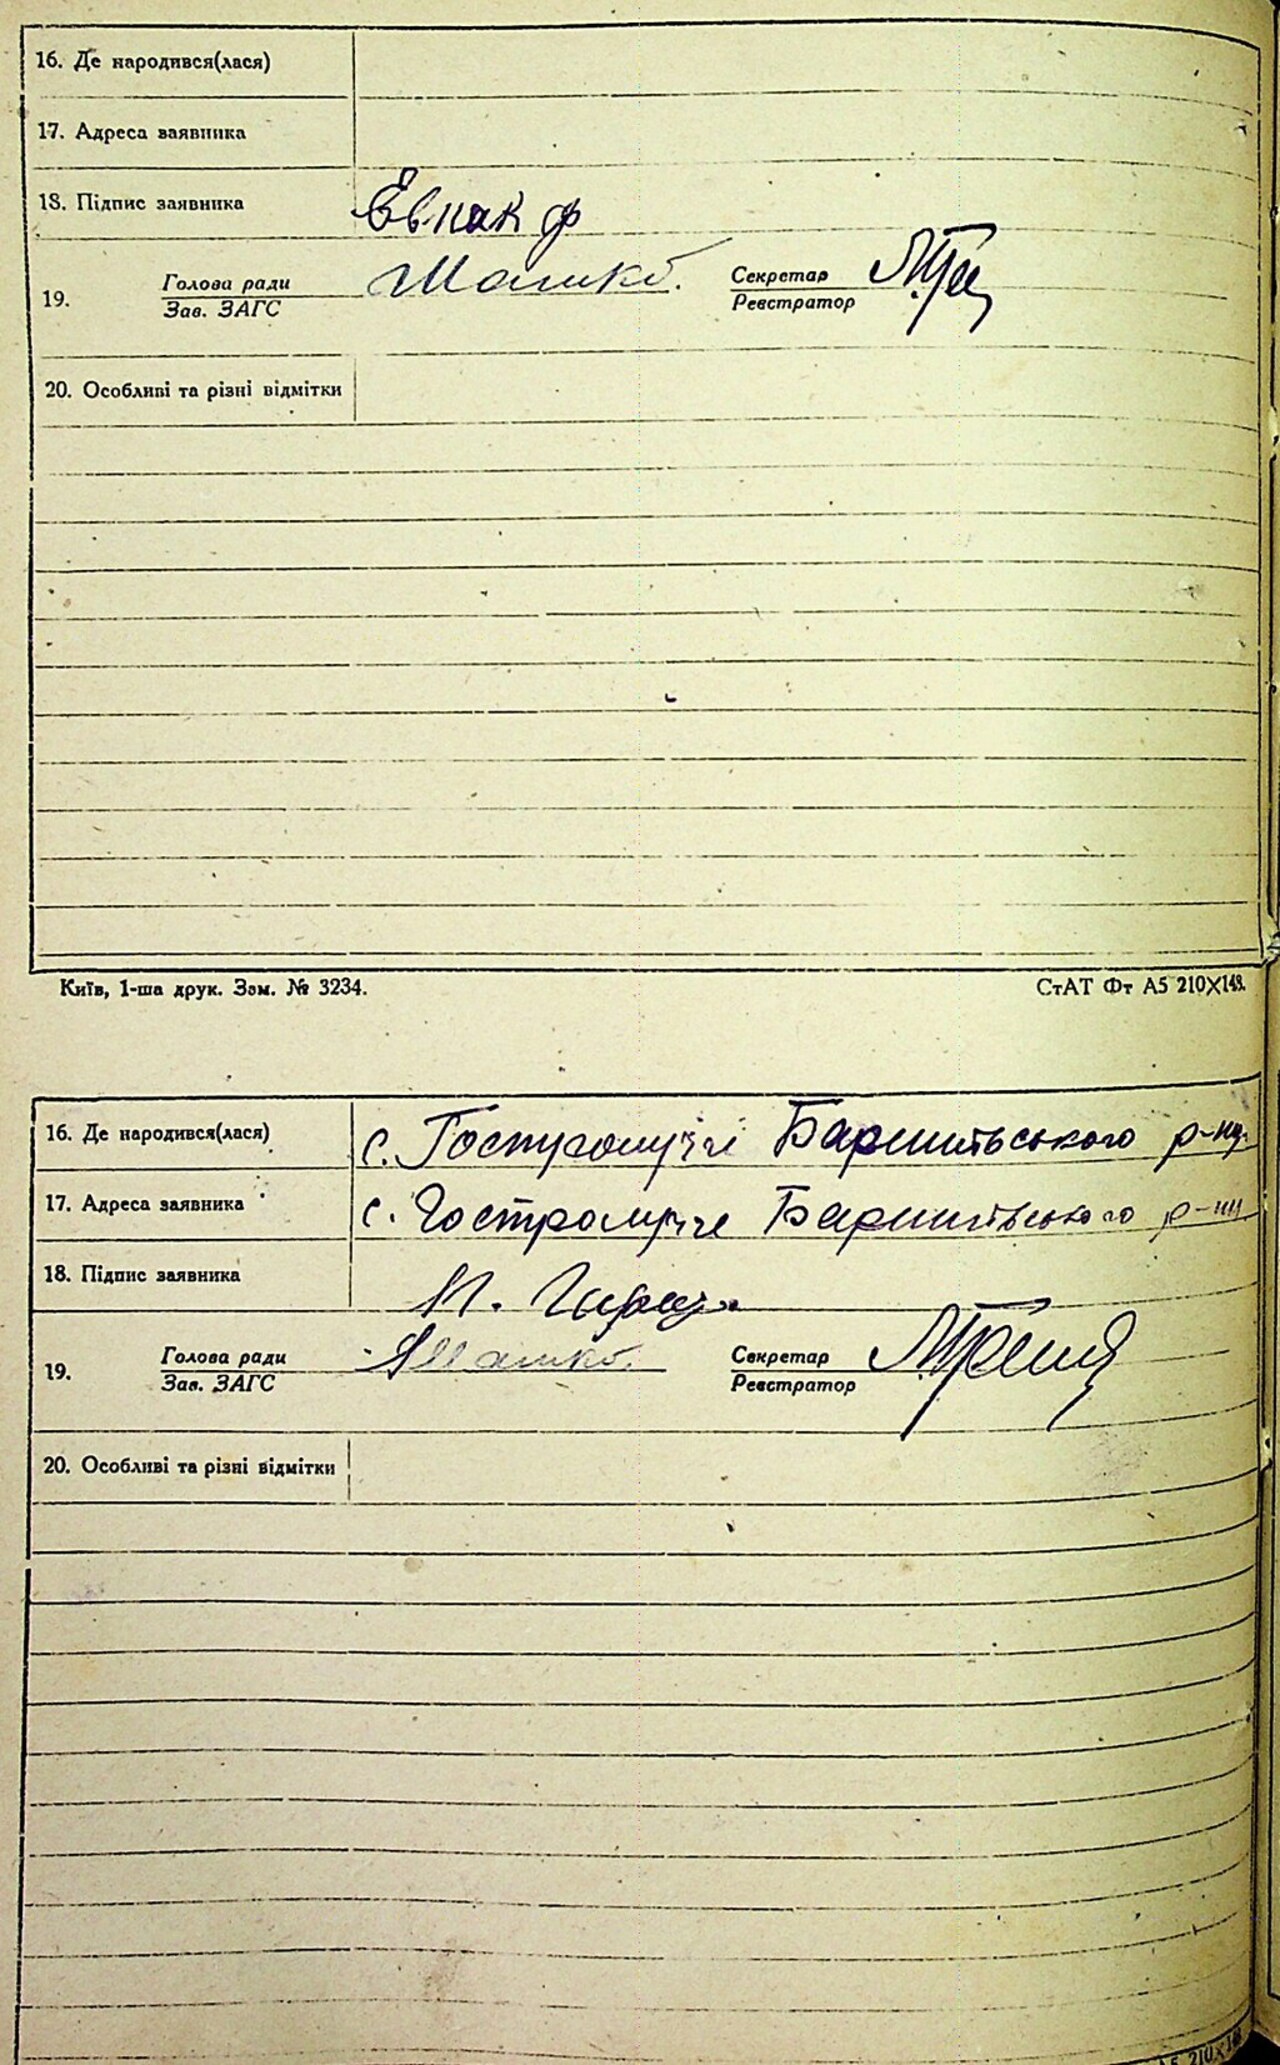 16. Де народився(лася)
17. Адреса заявника
18. Підпис заявника Евнак ф
19. Голова ради Зав. ЗАГС Секретар Реєстратор
20. Особливі та різні відмітки
Київ, 1-ша друк. Зам. № 3234. СтАТ Фт А5 210×148.
16. Де народився(лася) с. Гостролуччі Баришівського р-ну.
17. Адреса заявника с. Гостролучче Баришівського р-ну
18. Підпис заявника
19. Голова ради Зав. ЗАГС Секретар Реєстратор
20. Особливі та різні відмітки